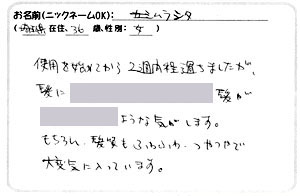 お名前(ニックネームOK): カミハラシタ
(埼玉県 在住、36 歳、性別: 女 )
使用を始めてから2週間程過ちましたが、
髪に 髪が
ような気がします。
もちろん、髪質もふわふわ・つやつやで
大変気に入っています。